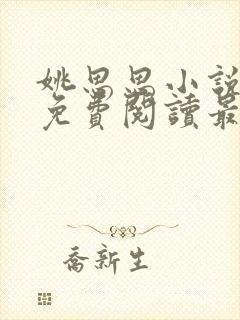 姚思思小說
免費閱讀最
喬新生